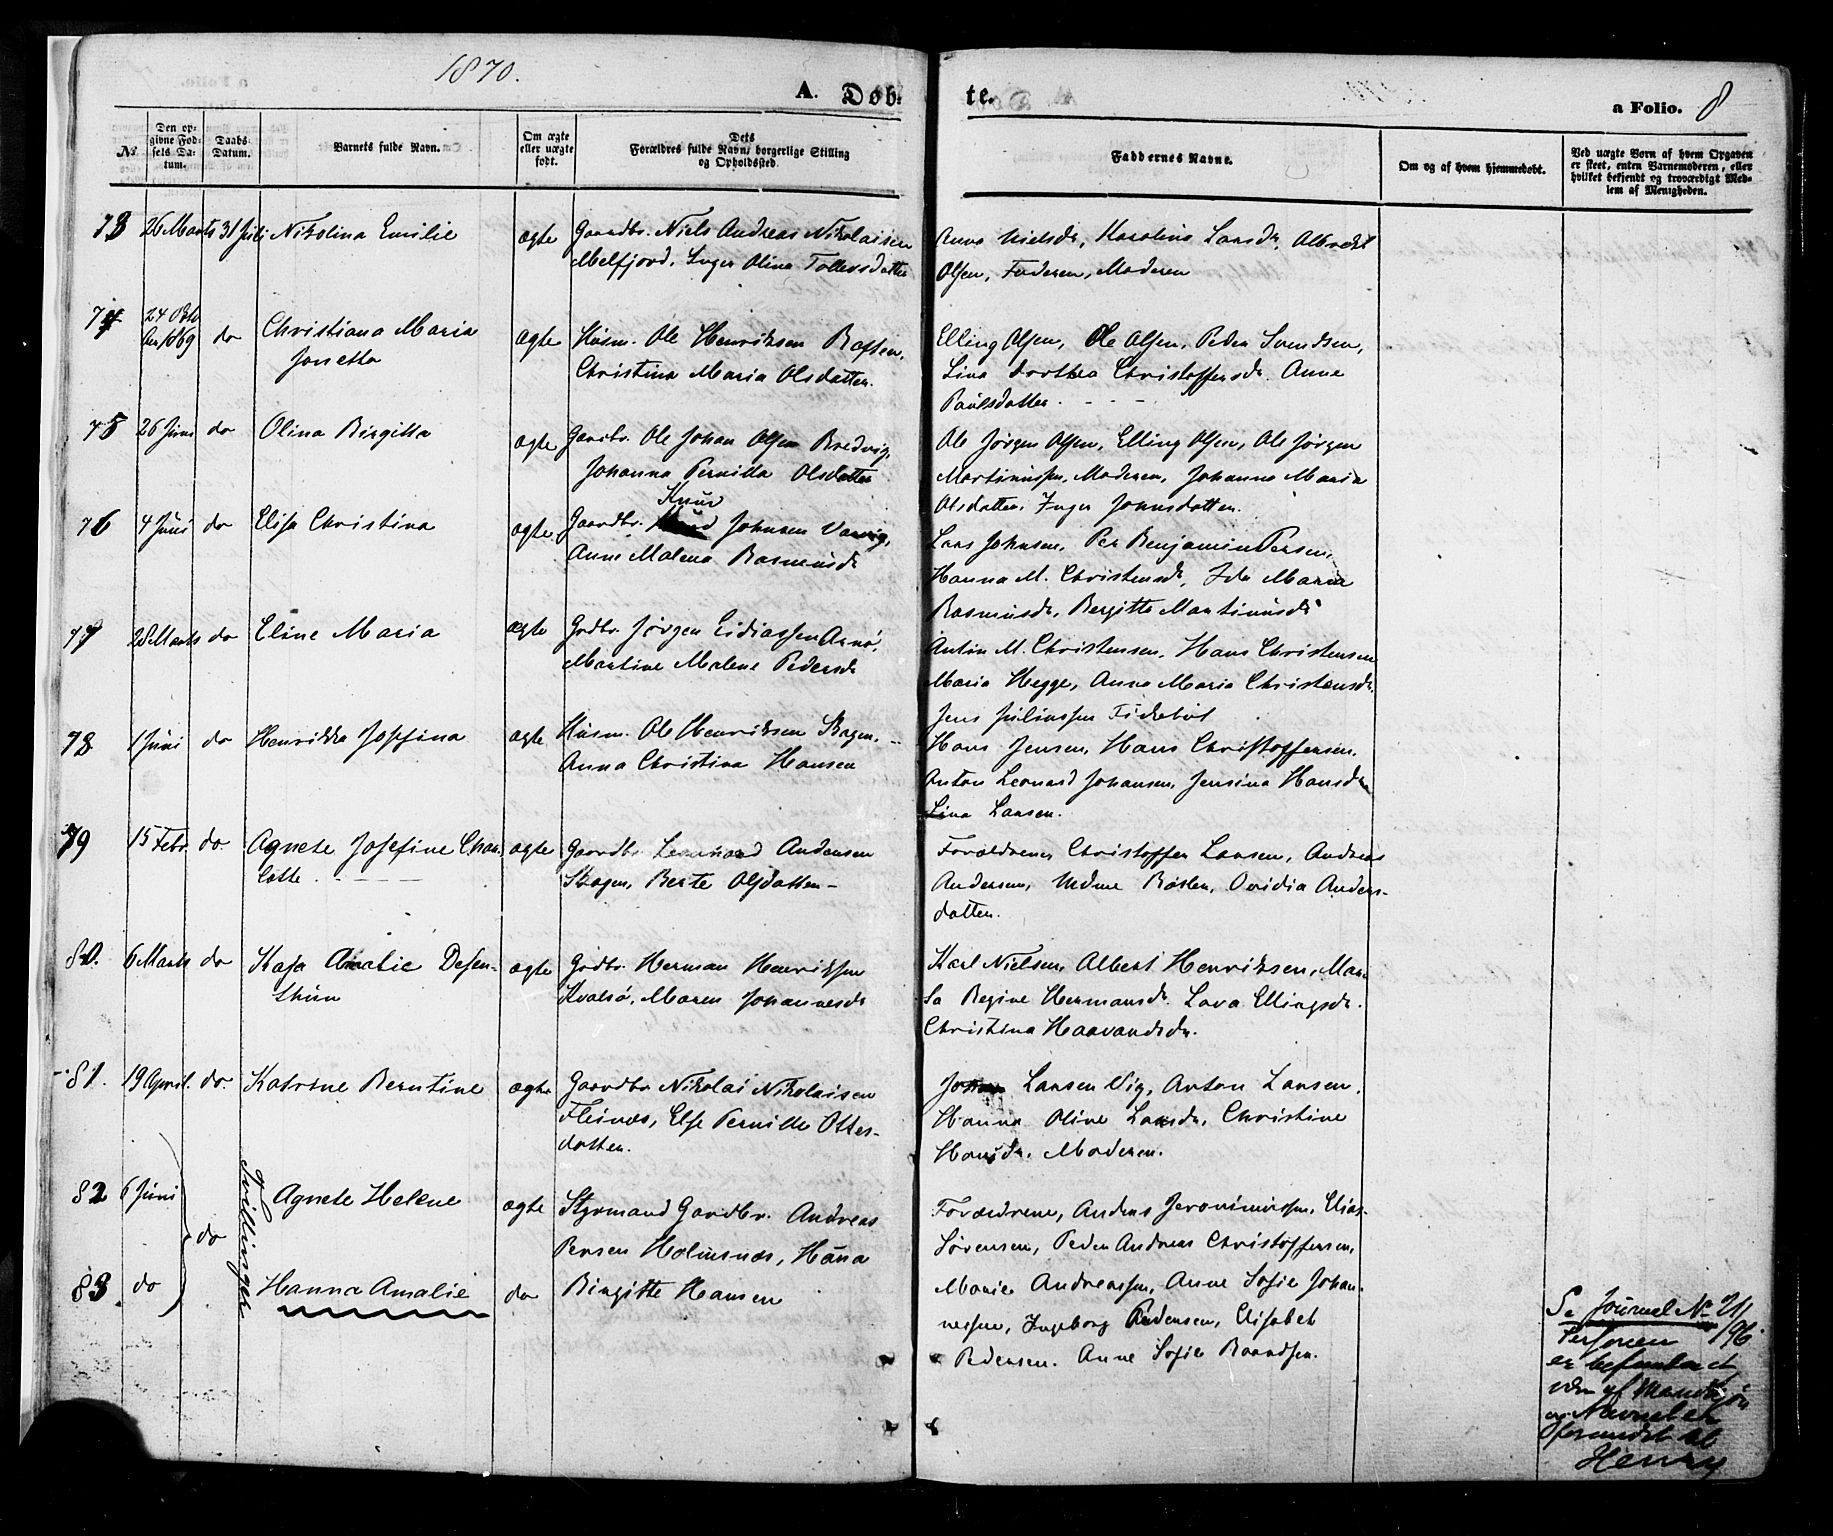 1870.
A. Døb-
te.
a Folio. 8
№
Den op-
givne Fød-
sels Da-
tum.
Daabs-
Datum.
Barnets fulde Navn.
Om ægte
eller uægte
født.
Dets
Forældres fulde Navn, borgerlige Stilling
og Opholdssted.
Faddernes Navne.
Om og af hvem hjemmedøbt.
Ved uægte Børn af hvem Opgaven
er skeet, enten Barnemoderen, eller
hvilket bekjendt og troværdigt Med-
lem af Menigheden.
73 26 Marts 31 Juli Nikolina Emilie ægte Gaardbr. Niels Andreas Nikolaisen
Melfjord, Inger Olina Tollevsdatter
Anna Nielsdr, Karolina Larsdr, Albrekt
Olsen, Faderen, Moderen
74 24 Okto
ber 1869 do Christiana Maria
Jonetta ægte Husm. Ole Henriksen
Christina Maria Olsdatter.
Elling Olsen, Ole Olsen, Peder Svendsen,
Lina Dorthea Christoffersdr. Anne
Paulsdatter
75 26 Juni do Olina Birgitta ægte Gaardbr. Ole Johan Olsen Bredvig,
Johanna Pernilla Olsdatter
Ole Jørgen Olsen, Elling Olsen, Ole Jørgen
Martinussen, Moderen, Johanna Maria
Olsdatter, Inger Johnsdatter.
76 4 Juni do Elisa Christina ægte Gaardbr. Knud Johnsen
Anne Malena Rasmusdr
Lars Johnsen, Per Benjamin Persen,
Hanna M. Christensdr, Ida Maria
Rasmusdr, Bergitte Martinusdr
77 28 Marts do Eline Maria ægte Grdbr. Jørgen Eidiassen
Martine Malene Pedersdr
Anton M. Christensen, Hans Christensen
Maria Hegge, Anna Maria Christensdr,
Jens Juliussen
78 1 Juni do Henrikka Josefina ægte Husm. Ole Henriksen Skogen,
Anna Christina Hansen
Hans Jensen, Hans Christoffersen,
Anton Leonard Johansen, Jensina Hansdr
Lina Larsen.
79 15 Febr. do. Agnete Josefine Char-
lotte ægte Gaardbr. Leonhard Andersen
Skogen, Berte Olsdatter
Forældrene Christoffer Larsen, Andreas
Andersen, Mdme Røslen, Ovidia Anders-
datter.
80. 6 Marts do Kaja Amalie Desen-
thun ægte Grdbr. Herman Henriksen
Kvalsø, Maren Johannesdr
Karl Nielsen, Albert Henriksen, Mar-
ta Regine Hermansdr. Lava Ellingsdr.
Christina Haavardsdr.
81. 19 April. do. Katrine Berntine ægte Gaardbr Nikolai Nikolaisen
Fleinæs, Else Pernille Otters-
datter.
Larsen Vig, Anton Larsen,
Hanna Oline Larsdr, Christine
Hansdr. Moderen.
82 6 Juni do Tvillinger Agnete Helene ægte Styrmand Gardbr. Andreas
Persen Holmsnæs, Hana
83. do Hanna Amalie do Birgitte Hansen
Forældrene, Anders Jeronimussen, Elias
Sørensen, Peder Andreas Christoffersen,
Marie Andreassen, Anne Sofie Johan-
nessen, Ingeborg Pedersen, Elisabet
Pedersen. Anne Sofie
Se Journal No 21/96
Personen
er befundet at
være af Mandkjøn
og Navnet er
forandret til
Henry